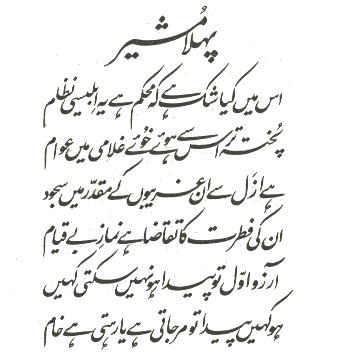 پہلا مُشیر
اس میں کیا شک ہے کہ محکم ہے یہ ابلیسی نظام
پُختہ تر اس سے ہوئے خُوئے غلامی میں عوام
ہے اَزَل سے ان غریبوں کے مقدّر میں سجود
ان کی فطرت کا تقاضا ہے نماز بے قیام
آرزو اوّل تو پیدا ہو نہیں سکتی کہیں
ہو کہیں پیدا تو مر جاتی ہے یا رہتی ہے خام